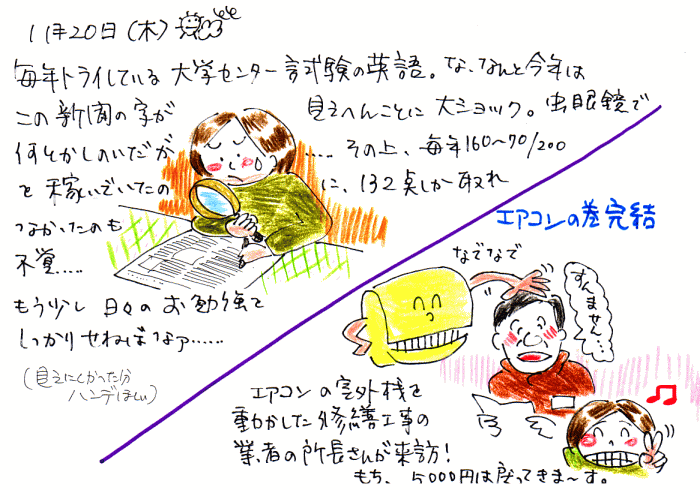 1月20日(木)
毎年トライしている大学センター試験の英語。な、なんと今年は
この新聞の字が見えへんことに大ショック。虫眼鏡で
何とかしのいだが..... その上、毎年160〜70/200
を稼いでいたのに、132点しか取れ
なかったのも
不覚.....
もう少し日々のお勉強を
しっかりせねばなァ......
(見えにくかった分
ハンデほしい)
エアコンの巻完結
なでなで
すんません...
エアコンの室外機を
動かした修繕工事の
業者の所長さんが来訪!
もち、5000円は戻ってきま〜す。